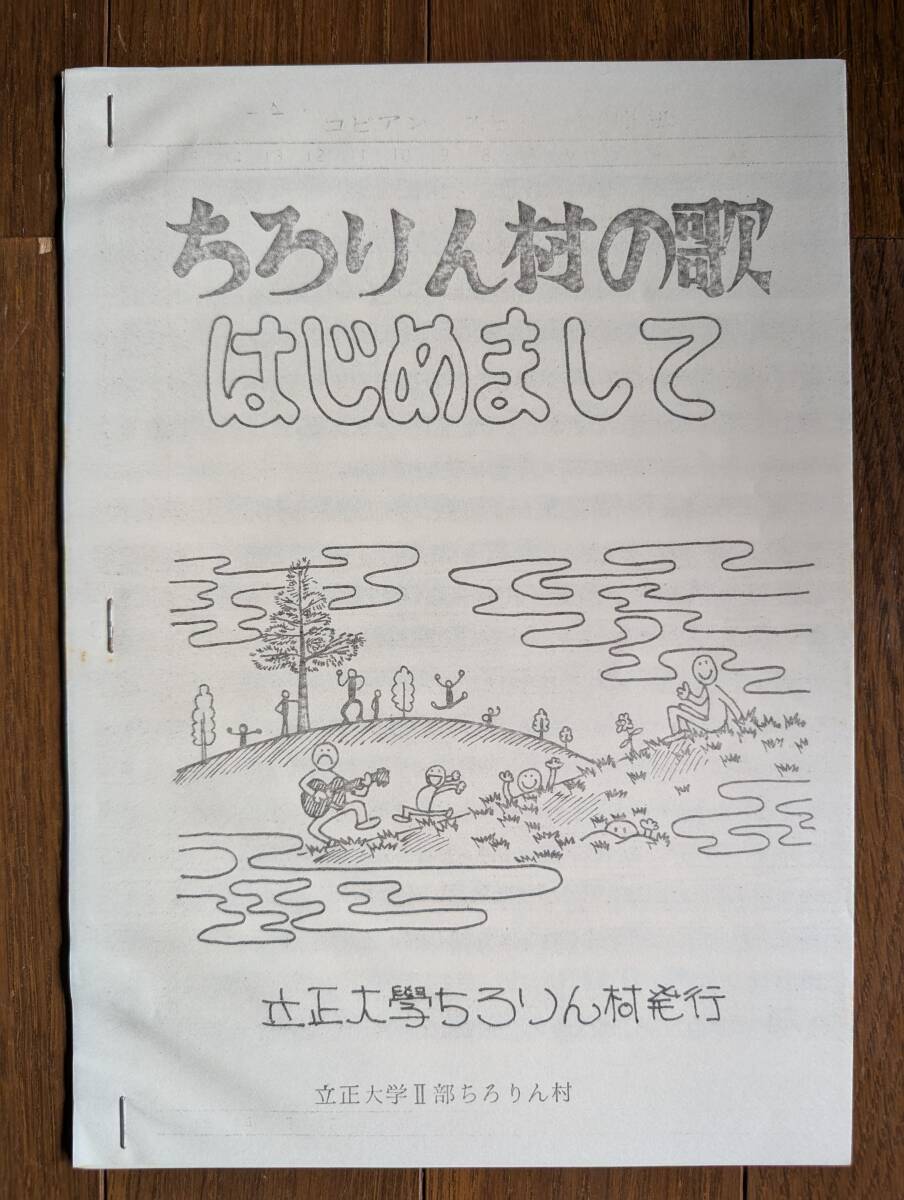 コピアン
ちろりん村の歌
はじめまして
立正大學ちろりん村発行
立正大学Ⅱ部ちろりん村